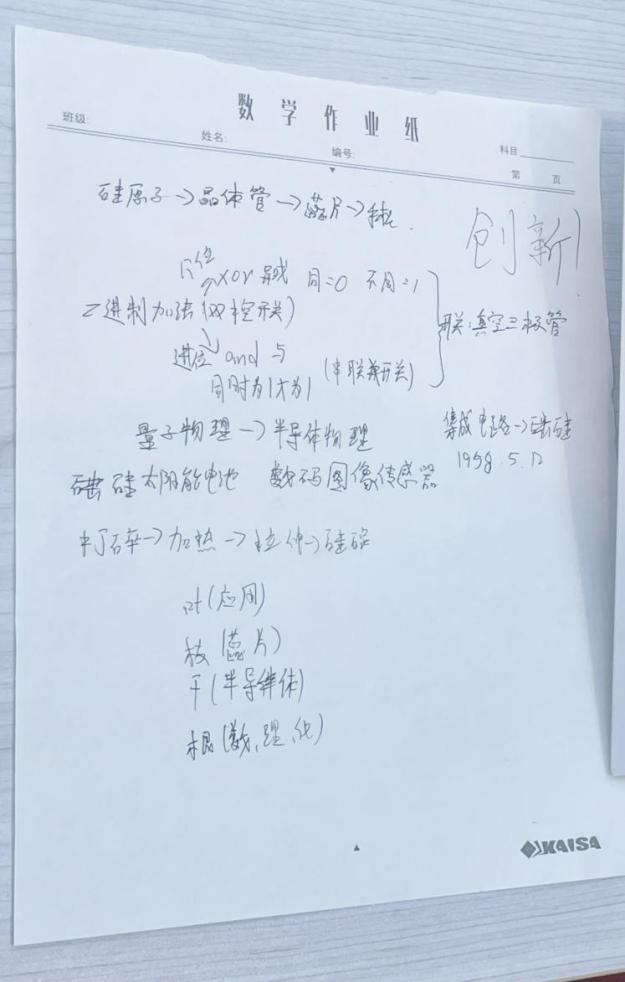 数学作业纸
班级:
姓名:
编号:
科目
第 页
硅原子→晶体管→芯片→
创新!
xor 异或 同=0 不同=1
二进制加法(双控开关)
进位 and 与 (串联开关)
同时为1才为1
开关:真空三极管
量子物理→半导体物理
集成电路→硅
1958.5.12
硅太阳能电池 数码图像传感器
→加热→拉伸→硅碇
叶(应用)
枝(芯片)
干(半导体)
根(数,理,化)
KAISA